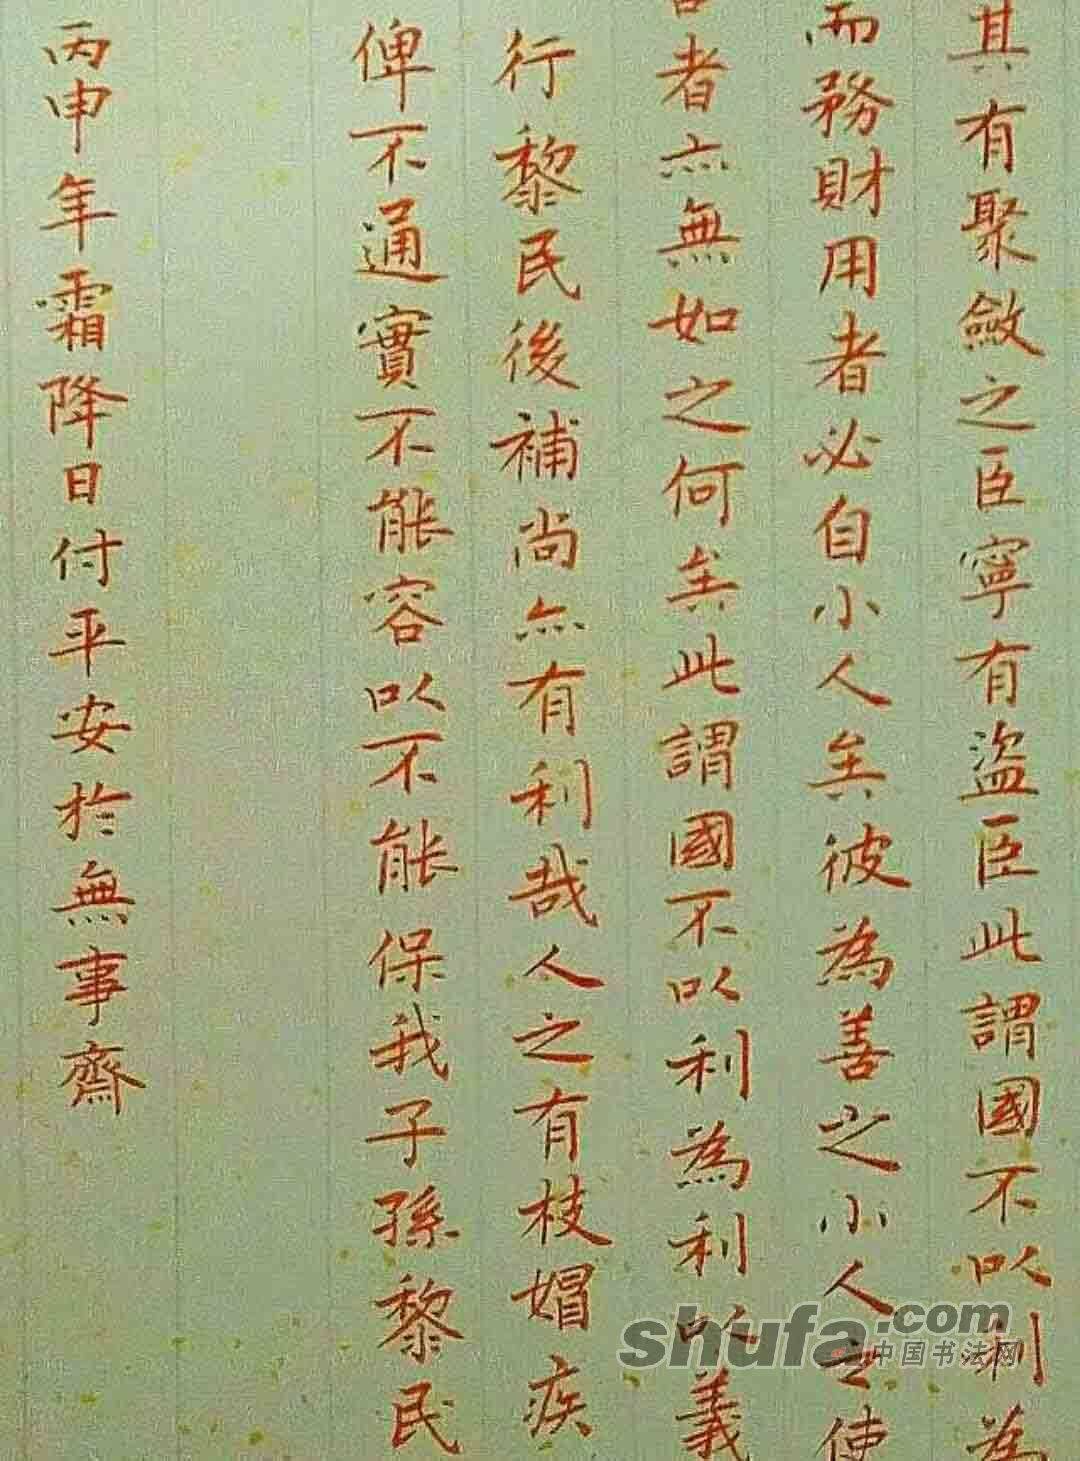 其有聚斂之臣寧有盜臣此謂國不以利為
而務財用者必自小人矣彼為善之小人之使
者亦無如之何矣此謂國不以利為利以義
行黎民後補尚亦有利哉人之有枝媢疾
俾不通實不能容以不能保我子孫黎民
丙申年霜降日付平安於無事齋
shufa.com
中国书法网